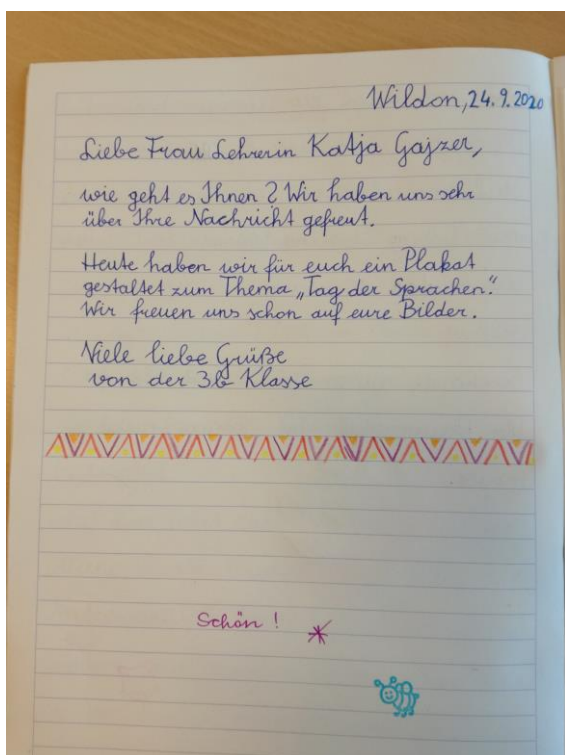 Wildon, 24. 9. 2020
Liebe Frau Lehrerin Katja Gajzer,
wie geht es Ihnen? Wir haben uns sehr
über Ihre Nachricht gefreut.
Heute haben wir für euch ein Plakat
gestaltet zum Thema „Tag der Sprachen“.
Wir freuen uns schon auf eure Bilder.
Viele liebe Grüße
von der 3b Klasse
Schön!